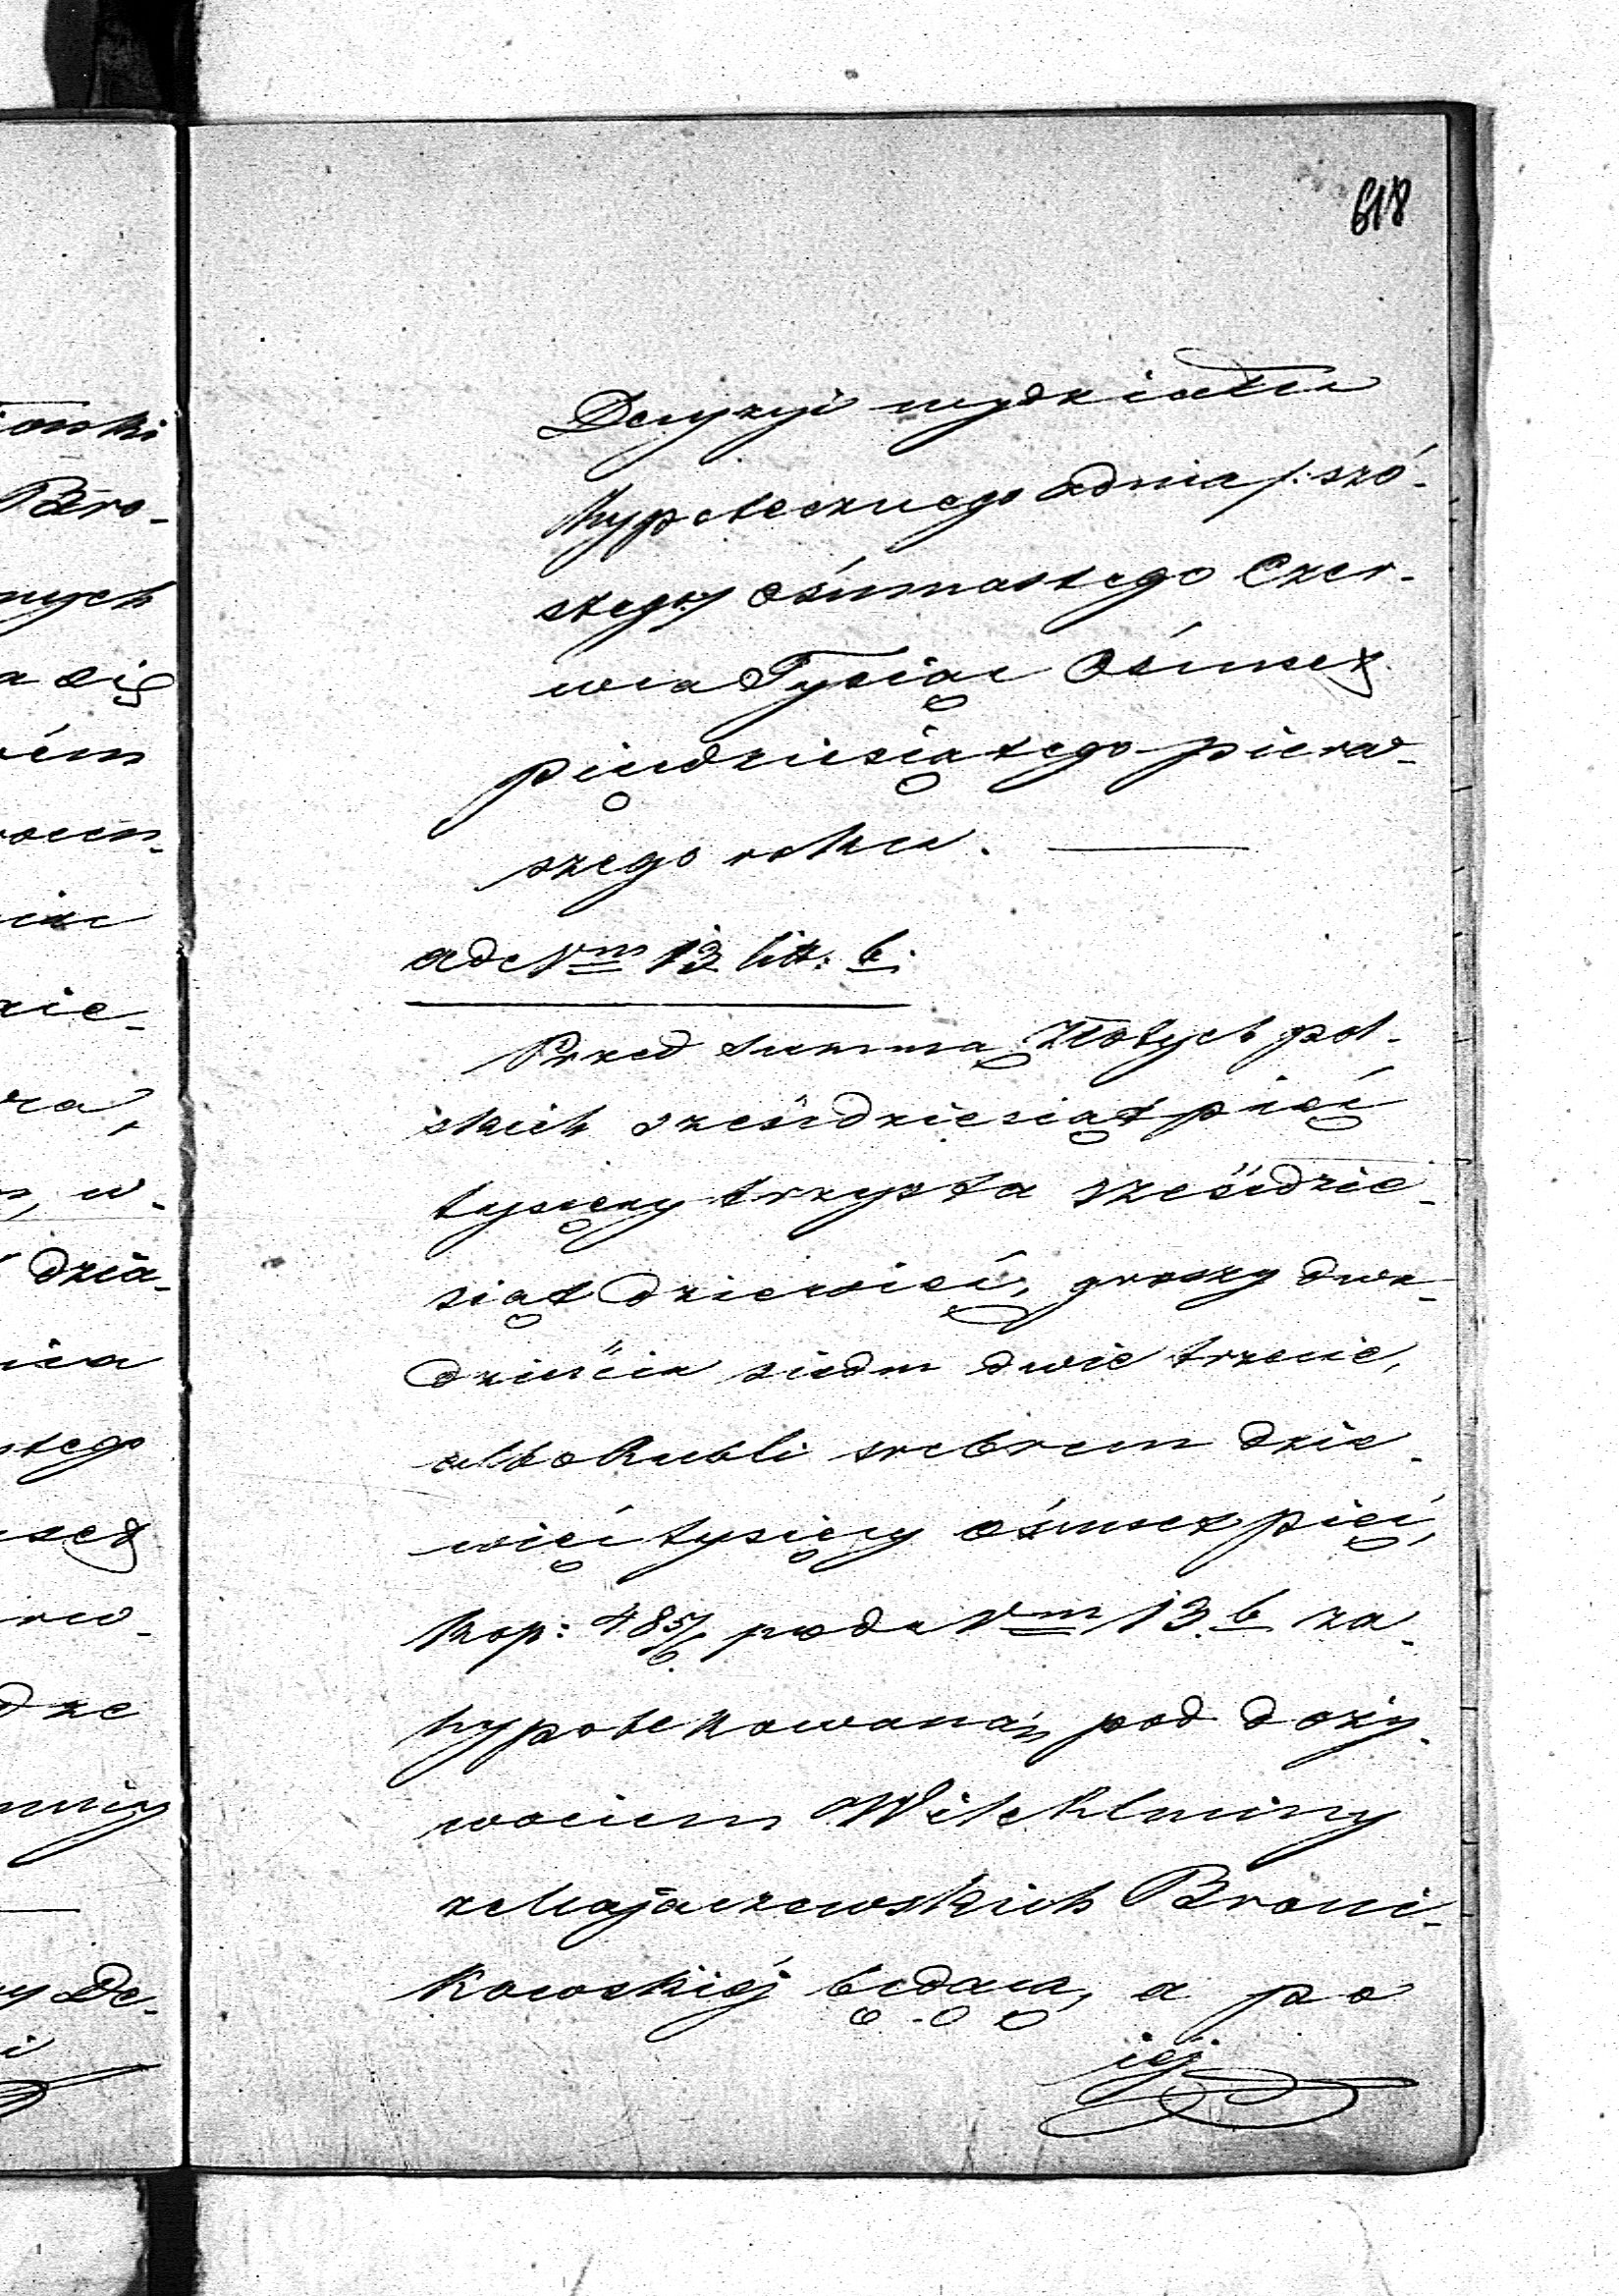 618
Decyzyi wydziału
hypotecznego z dnia /: szó-
stego :/ ośmnastego Czer-
wca Tysiąc Ośmset
pięćdziesiątego pierw-
szego roku.
ad Nm 13 litt: b.
Przed summą Złotych pol-
skich sześćdziesiąt pięć
tysięcy trzysta sześćdzie-
siąt dziewięć, groszy dwa-
dzieścia siedm dwie trzecie,
albo Rubli srebrem dzie-
więć tysięcy ośmset pięć,
kop: 48 5/6 pod Nm 13 b za-
hypotekowaną, pod doży-
wociem Wilhelminy
z Majaczewskich Broni-
kowskiéj będącą, a po
iéj
Bro-
nych
się
dzia-
stego
De-